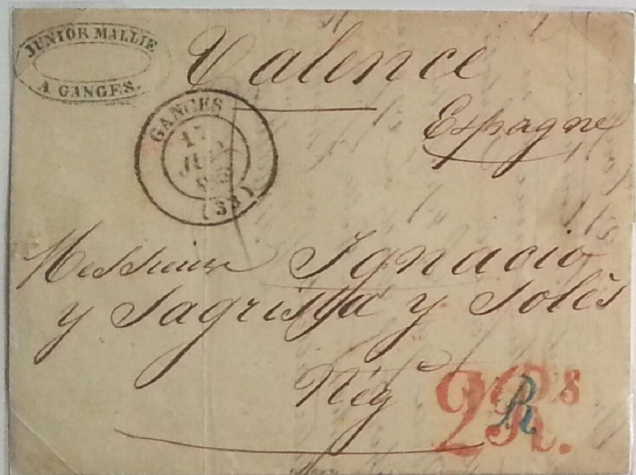 JUNIOR MALLIE
A GANGES.
Valence
Espagne
GANGES
17
(33)
Messieurs Ignacio
y Sagrista y Solès
Nég
2Rs.
R